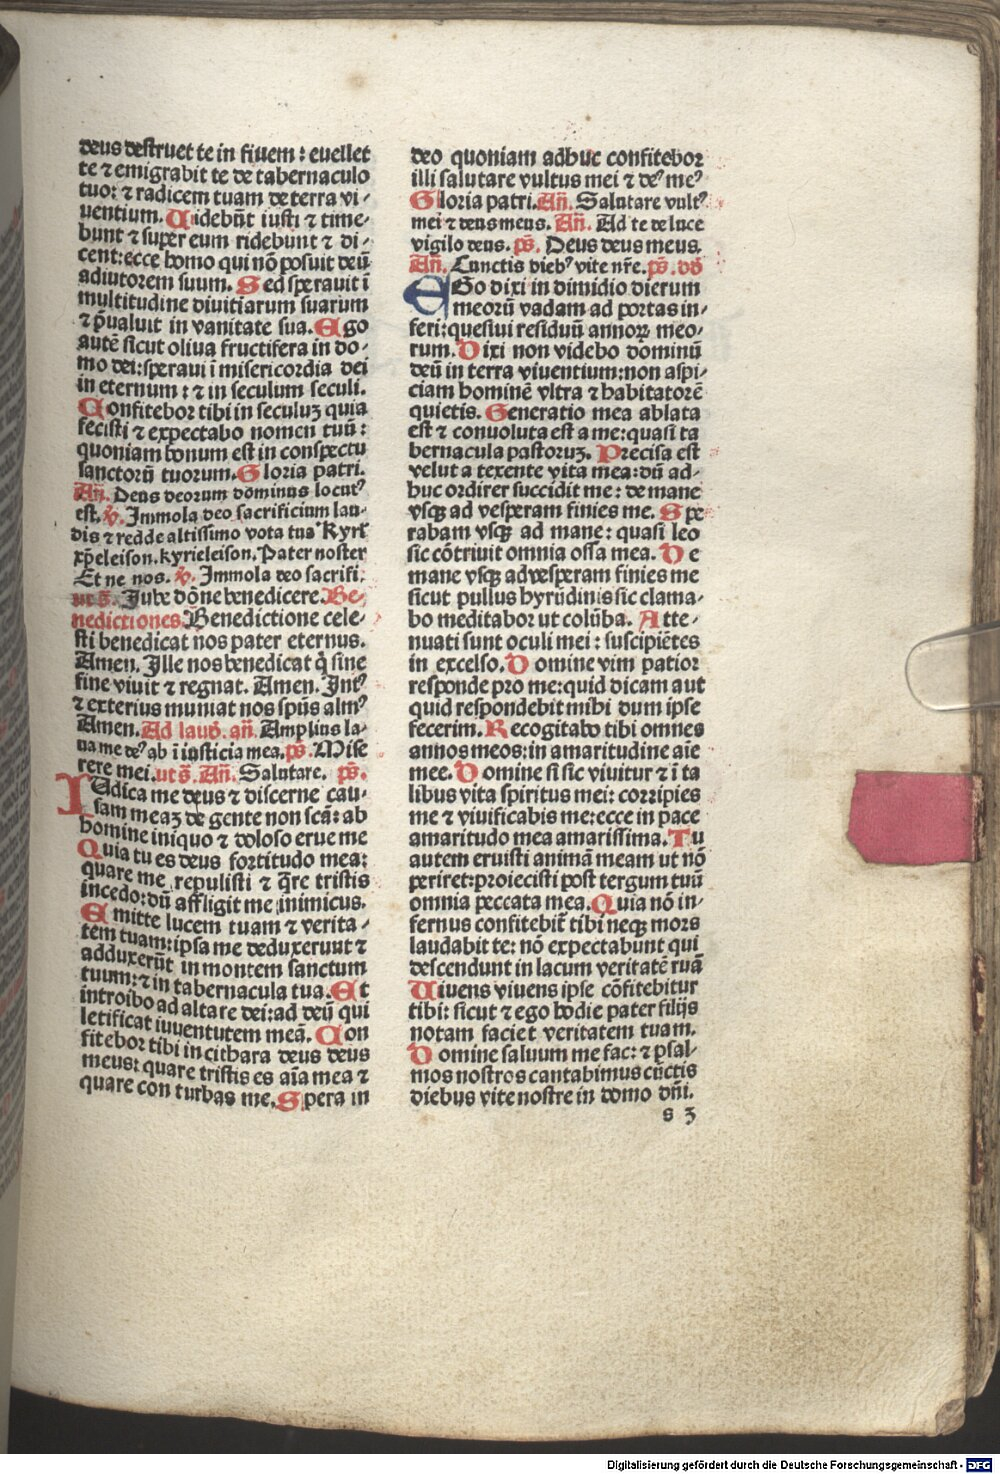 deus destruet te in finem : euellet
te ⁊ emigrabit te de tabernaculo
tuo: ⁊ radicem tuam de terra vi⸗
uentium. Uidebūt iusti ⁊ time⸗
bunt ⁊ super eum ridebunt ⁊ di⸗
cent:ecce homo qui nō posuit deū
adiutorem suum. Sed sperauit ī
multitudine diuitiarum suarum
⁊ p̄ualuit in vanitate sua. Ego
autē sicut oliua fructifera in do⸗
mo dei:speraui ī misericordia dei
in eternum : ⁊ in seculum seculi.
Confitebor tibi in seculuꝫ quia
fecisti ⁊ expectabo nomen tuū :
quoniam bonum est in conspectu
sanctorū tuorum. Gloria patri.
Añ. Deus deorum dominus locutꝰ
est. ℣. Immola deo sacrificium lau⸗
dis ⁊ redde altissimo vota tua Kyrĩ
xp̄eleison. kyrieleison. Pater noster
Et ne nos. ℣. Immola deo sacrifi:
ut s̄. Jube dōne benedicere. Be⸗
nedictiones. Benedictione cele⸗
sti benedicat nos pater eternus.
Amen. Ille nos benedicat q̇ sine
fine viuit ⁊ regnat. Amen. Intꝰ
⁊ exterius muniat nos spūs almꝰ
Amen. Ad laud̉. añ. Amplius la⸗
ua me deꝰ ab ī iusticia mea. ps̄. Mise
rere mei. ut s̄. Añ. Salutare. ps̄.
IUdica me deus ⁊ discerne cau⸗
sam meaꝫ de gente non scā: ab
homine iniquo ⁊ doloso erue me
Quia tu es deus fortitudo mea:
quare me repulisti ⁊ q̄re tristis
incedo: dū affligit me inimicus.
Emitte lucem tuam ⁊ verita⸗
tem tuam: ipsa me deduxerunt ⁊
adduxerūt in montem sanctum
tuum: ⁊ in tabernacula tua. Et
introibo ad altare dei: ad deū qui
letificat iuuentutem meā. Con
fitebor tibi in cithara deus deus
meus: quare tristis es aīa mea ⁊
quare con turbas me. Spera in
deo quoniam adhuc confitebor
illi salutare vultus mei ⁊ deꝰ meꝰ
Gloria patri. Añ. Salutare vultꝰ
mei ⁊ deus meus. Añ. Ad te de luce
vigilo deus. ps̄. Deus deus meus.
Añ. Cunctis diebꝰ vite nr̄e. ps̄. dd̄
EGo dixi in dimidio dierum
meorū vadam ad portas in⸗
feri: quesiui residuū annoꝝ meo⸗
rum. Dixi non videbo dominū
deū in terra viuentium: non aspi⸗
ciam hominē vltra ⁊ habitatorē
quietis. Generatio mea ablata
est ⁊ conuoluta est a me: quasi ta
bernacula pastoruꝫ. Precisa est
velut a texente vita mea: dū ad⸗
huc ordirer succidit me : de mane
vsqꝫ ad vesperam finies me. Spe
rabam vsqꝫ ad mane: quasi leo
sic cōtriuit omnia ossa mea. De
mane vsqꝫ ad vesperam finies me
sicut pullus hyrūdinis sic clama⸗
bo meditabor ut colūba. Atte⸗
nuati sunt oculi mei : suscipiētes
in excelso. Domine vim patior
responde pro me: quid dicam aut
quid respondebit mihi dum ipse
fecerim. Recogitabo tibi omnes
annos meos: in amaritudine aīe
mee. Domine si sic viuitur ⁊ ī ta
libus vita spiritus mei: corripies
me ⁊ viuificabis me: ecce in pace
amaritudo mea amarissima. Tu
autem eruisti animā meam ut nō
periret: proiecisti post tergum tuū
omnia peccata mea. Quia nō in⸗
fernus confitebit᷑ tibi neqꝫ mors
laudabit te: nō expectabunt qui
descendunt in lacum veritatē tuā
Uiuens viuens ipse cōfitebitur
tibi: sicut ⁊ ego hodie pater filijs
notam faciet veritatem tuam.
Domine saluum me fac: ⁊ psal⸗
mos nostros cantabimus cūctis
diebus vite nostre in domo dn̄i.
s 3
Digitalisierung gefördert durch die Deutsche Forschungsgemeinschaft - DFG